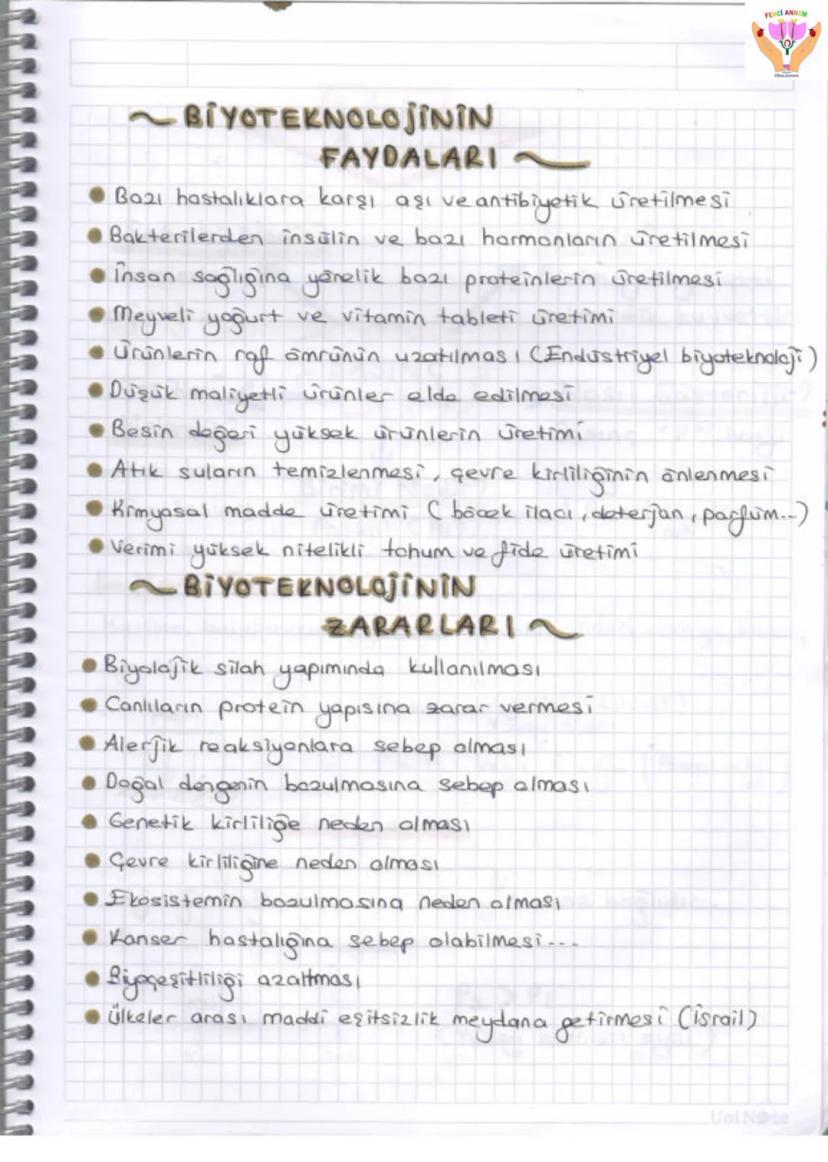 FENCİ ANNEM
~ BİYOTEKNOLOJİNİN
FAYDALARI ~
● Bazı hastalıklara karşı aşı ve antibiyotik üretilmesi
● Bakterilerden insülin ve bazı hormonların üretilmesi
● İnsan sağlığına yönelik bazı proteinlerin üretilmesi
● Meyveli yoğurt ve vitamin tableti üretimi
● Ürünlerin raf ömrünün uzatılması (Endüstriyel biyoteknoloji)
● Düşük maliyetli ürünler elde edilmesi
● Besin değeri yüksek ürünlerin üretimi
● Atık suların temizlenmesi, çevre kirliliğinin önlenmesi
● Kimyasal madde üretimi (böcek ilacı, deterjan, parfüm...)
● Verimi yüksek nitelikli tohum ve fide üretimi
~ BİYOTEKNOLOJİNİN
ZARARLARI ~
● Biyolojik silah yapımında kullanılması
● Canlıların protein yapısına zarar vermesi
● Alerjik reaksiyonlara sebep olması
● Doğal dengenin bozulmasına sebep olması
● Genetik kirliliğe neden olması
● Çevre kirliliğine neden olması
● Ekosistemin bozulmasına neden olması
● Kanser hastalığına sebep olabilmesi...
● Biyoçeşitliliği azaltması
● Ülkeler arası maddi eşitsizlik meydana getirmesi (İsrail)
UniNote